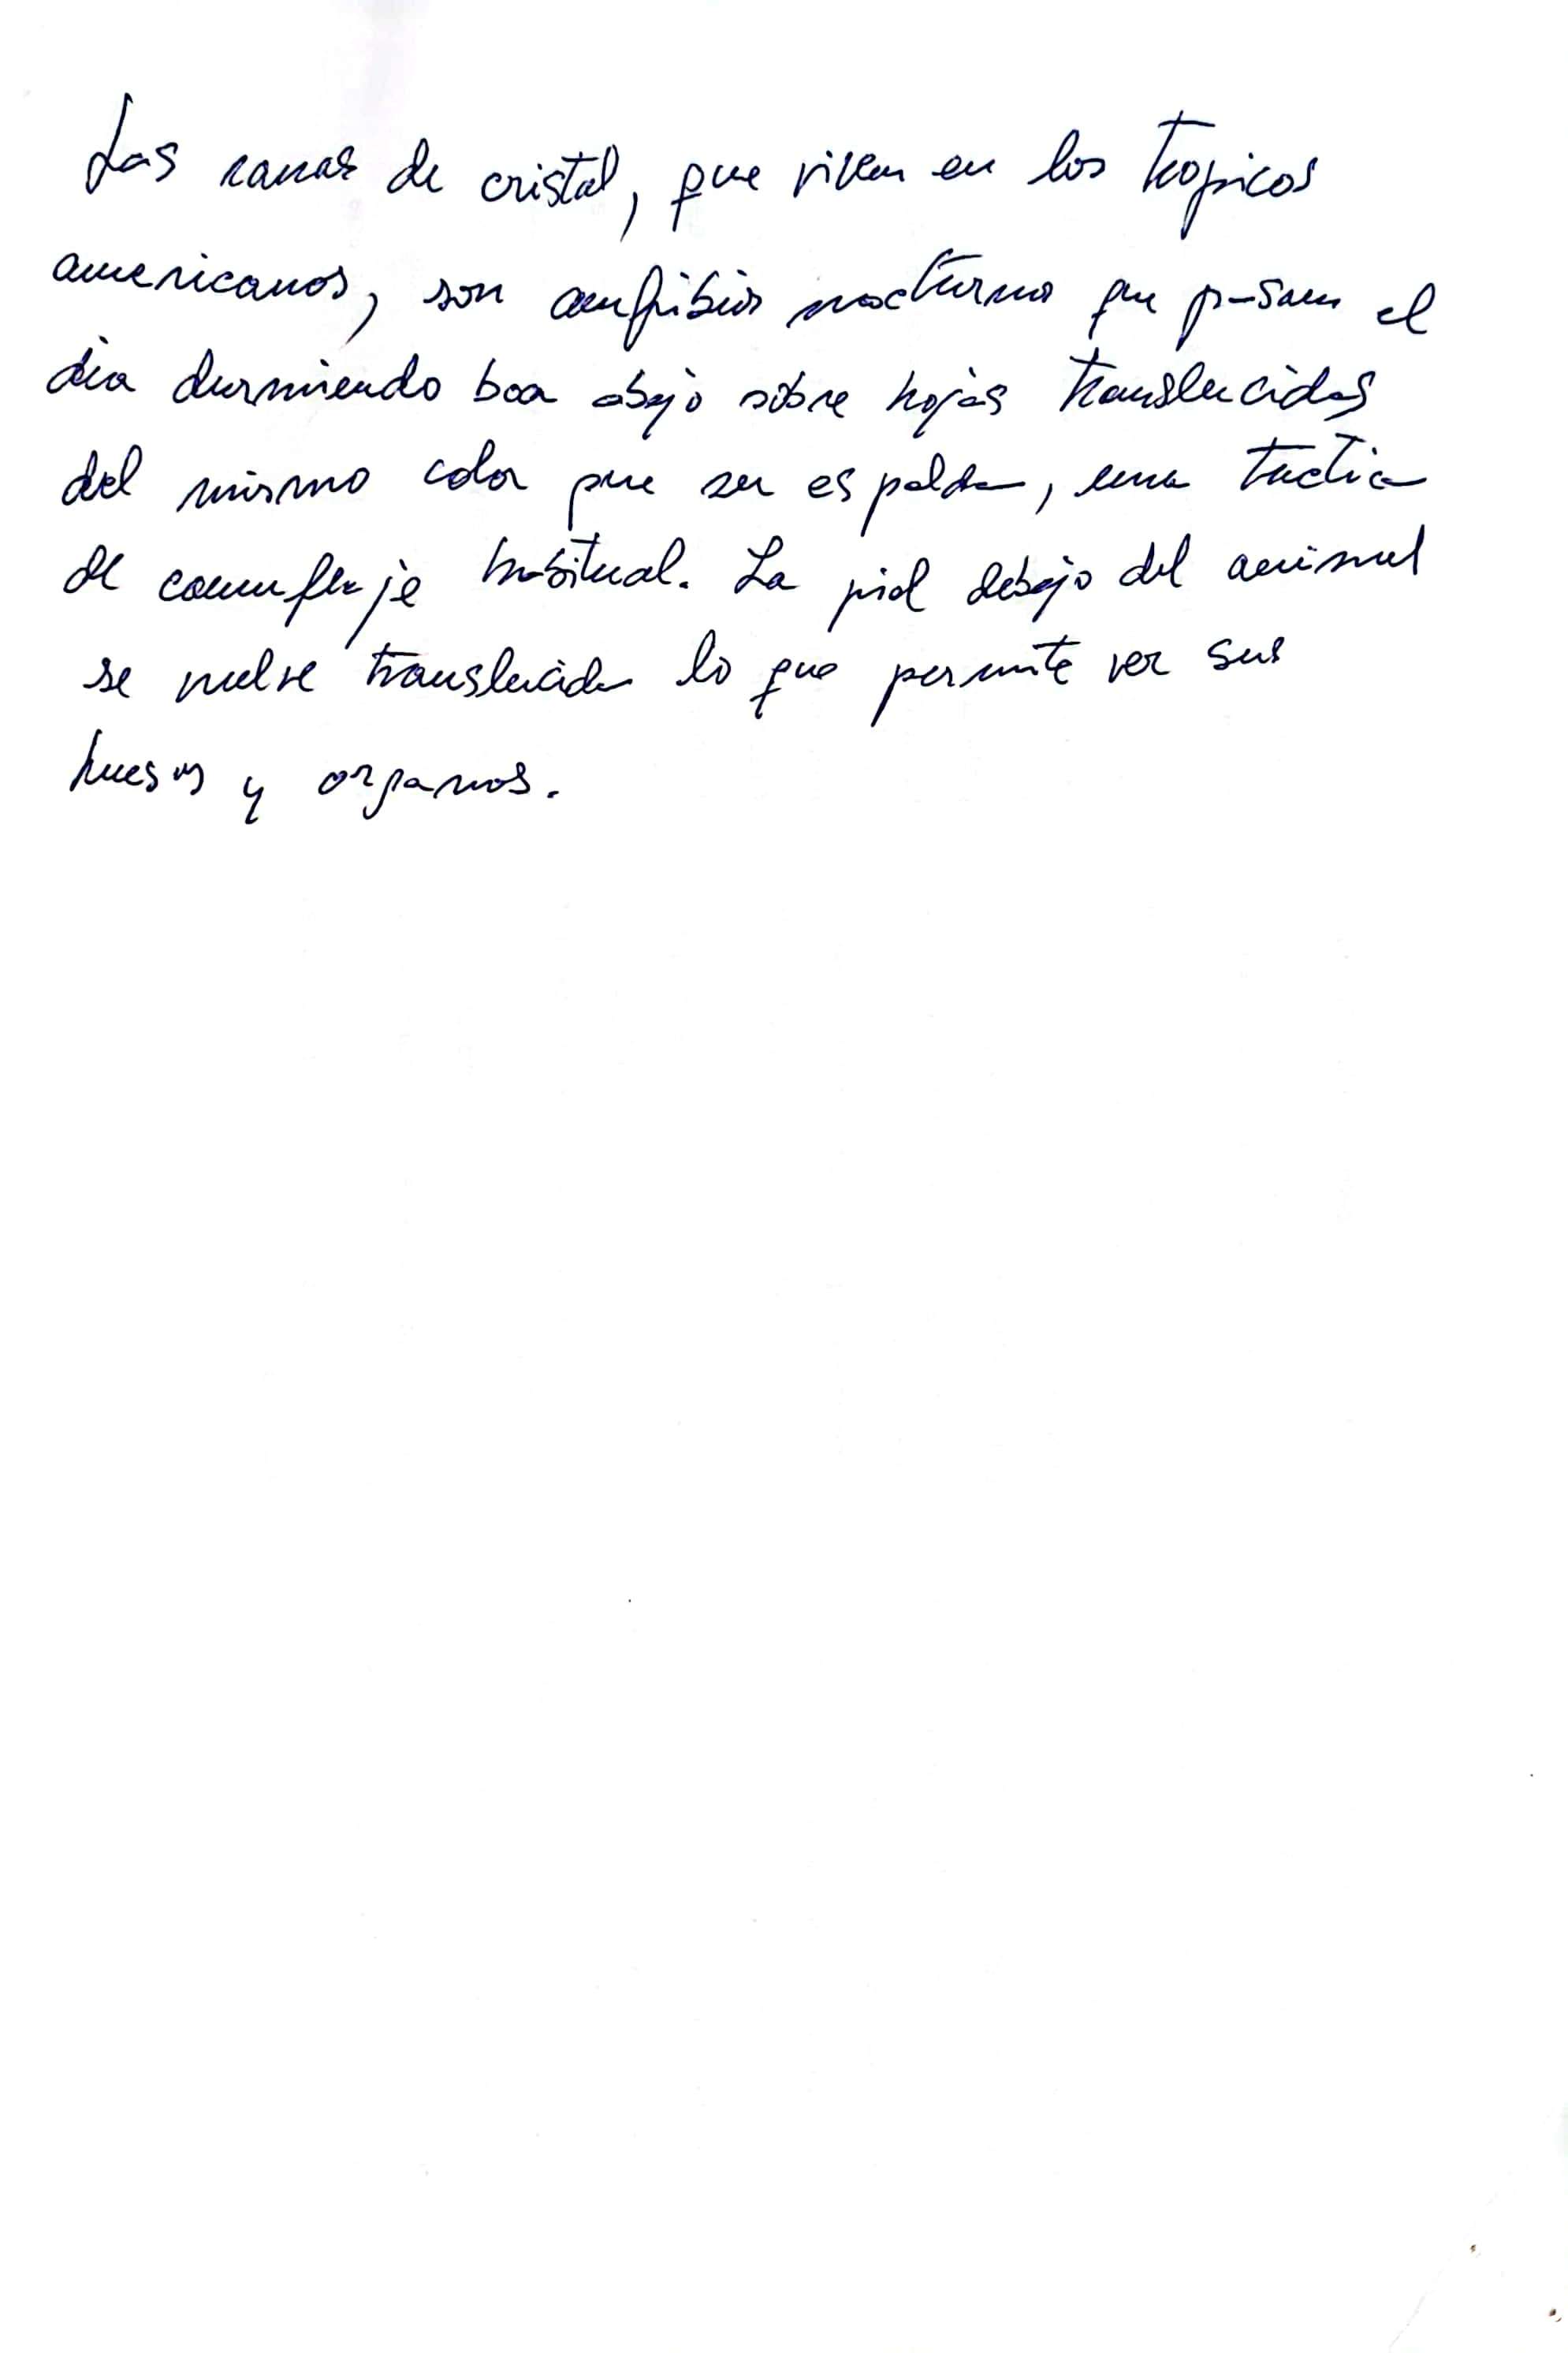 Las ranas de cristal, que viven en los tropicos
americanos, son anfibios nocturnos que pasan el
dia durmiendo boca abajo sobre hojas translucidas
del mismo color que su espalda, una tactica
de camuflaje habitual. La piel debajo del animal
se vuelve translucida lo que permite ver sus
huesos y organos.